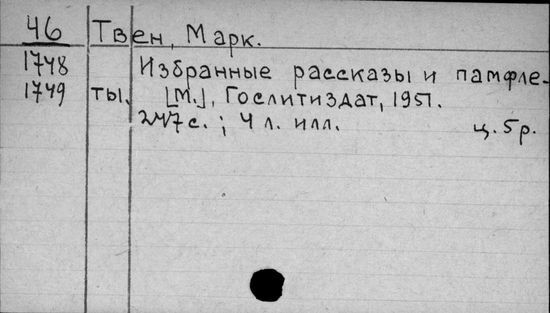 46 Твен, Марк.
1748 Избранные рассказы и памфле-
1749 ты. [М.], Гослитиздат, 1951.
247 с. ; 4 л. илл. ц. 5 р.